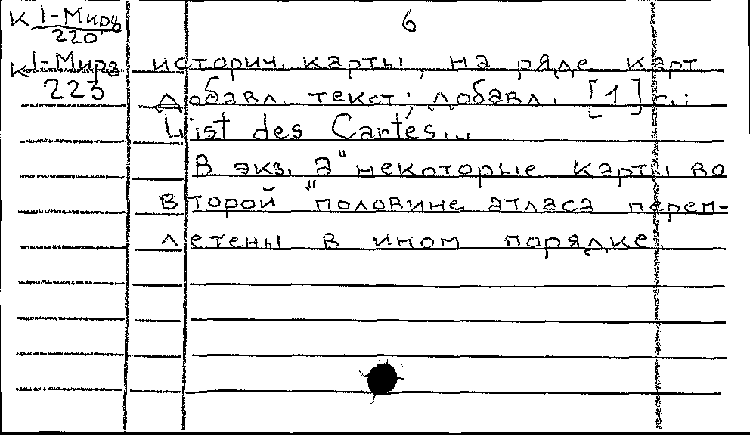 К 1-Мира 6
220
К 1-Мира историч. карты, на ряде карт
223 добавл. текст; добавл. [1] с.:
List des Cartes...
В экз. "а" некоторые карты во
второй половине атласа переп-
летены в ином порядке